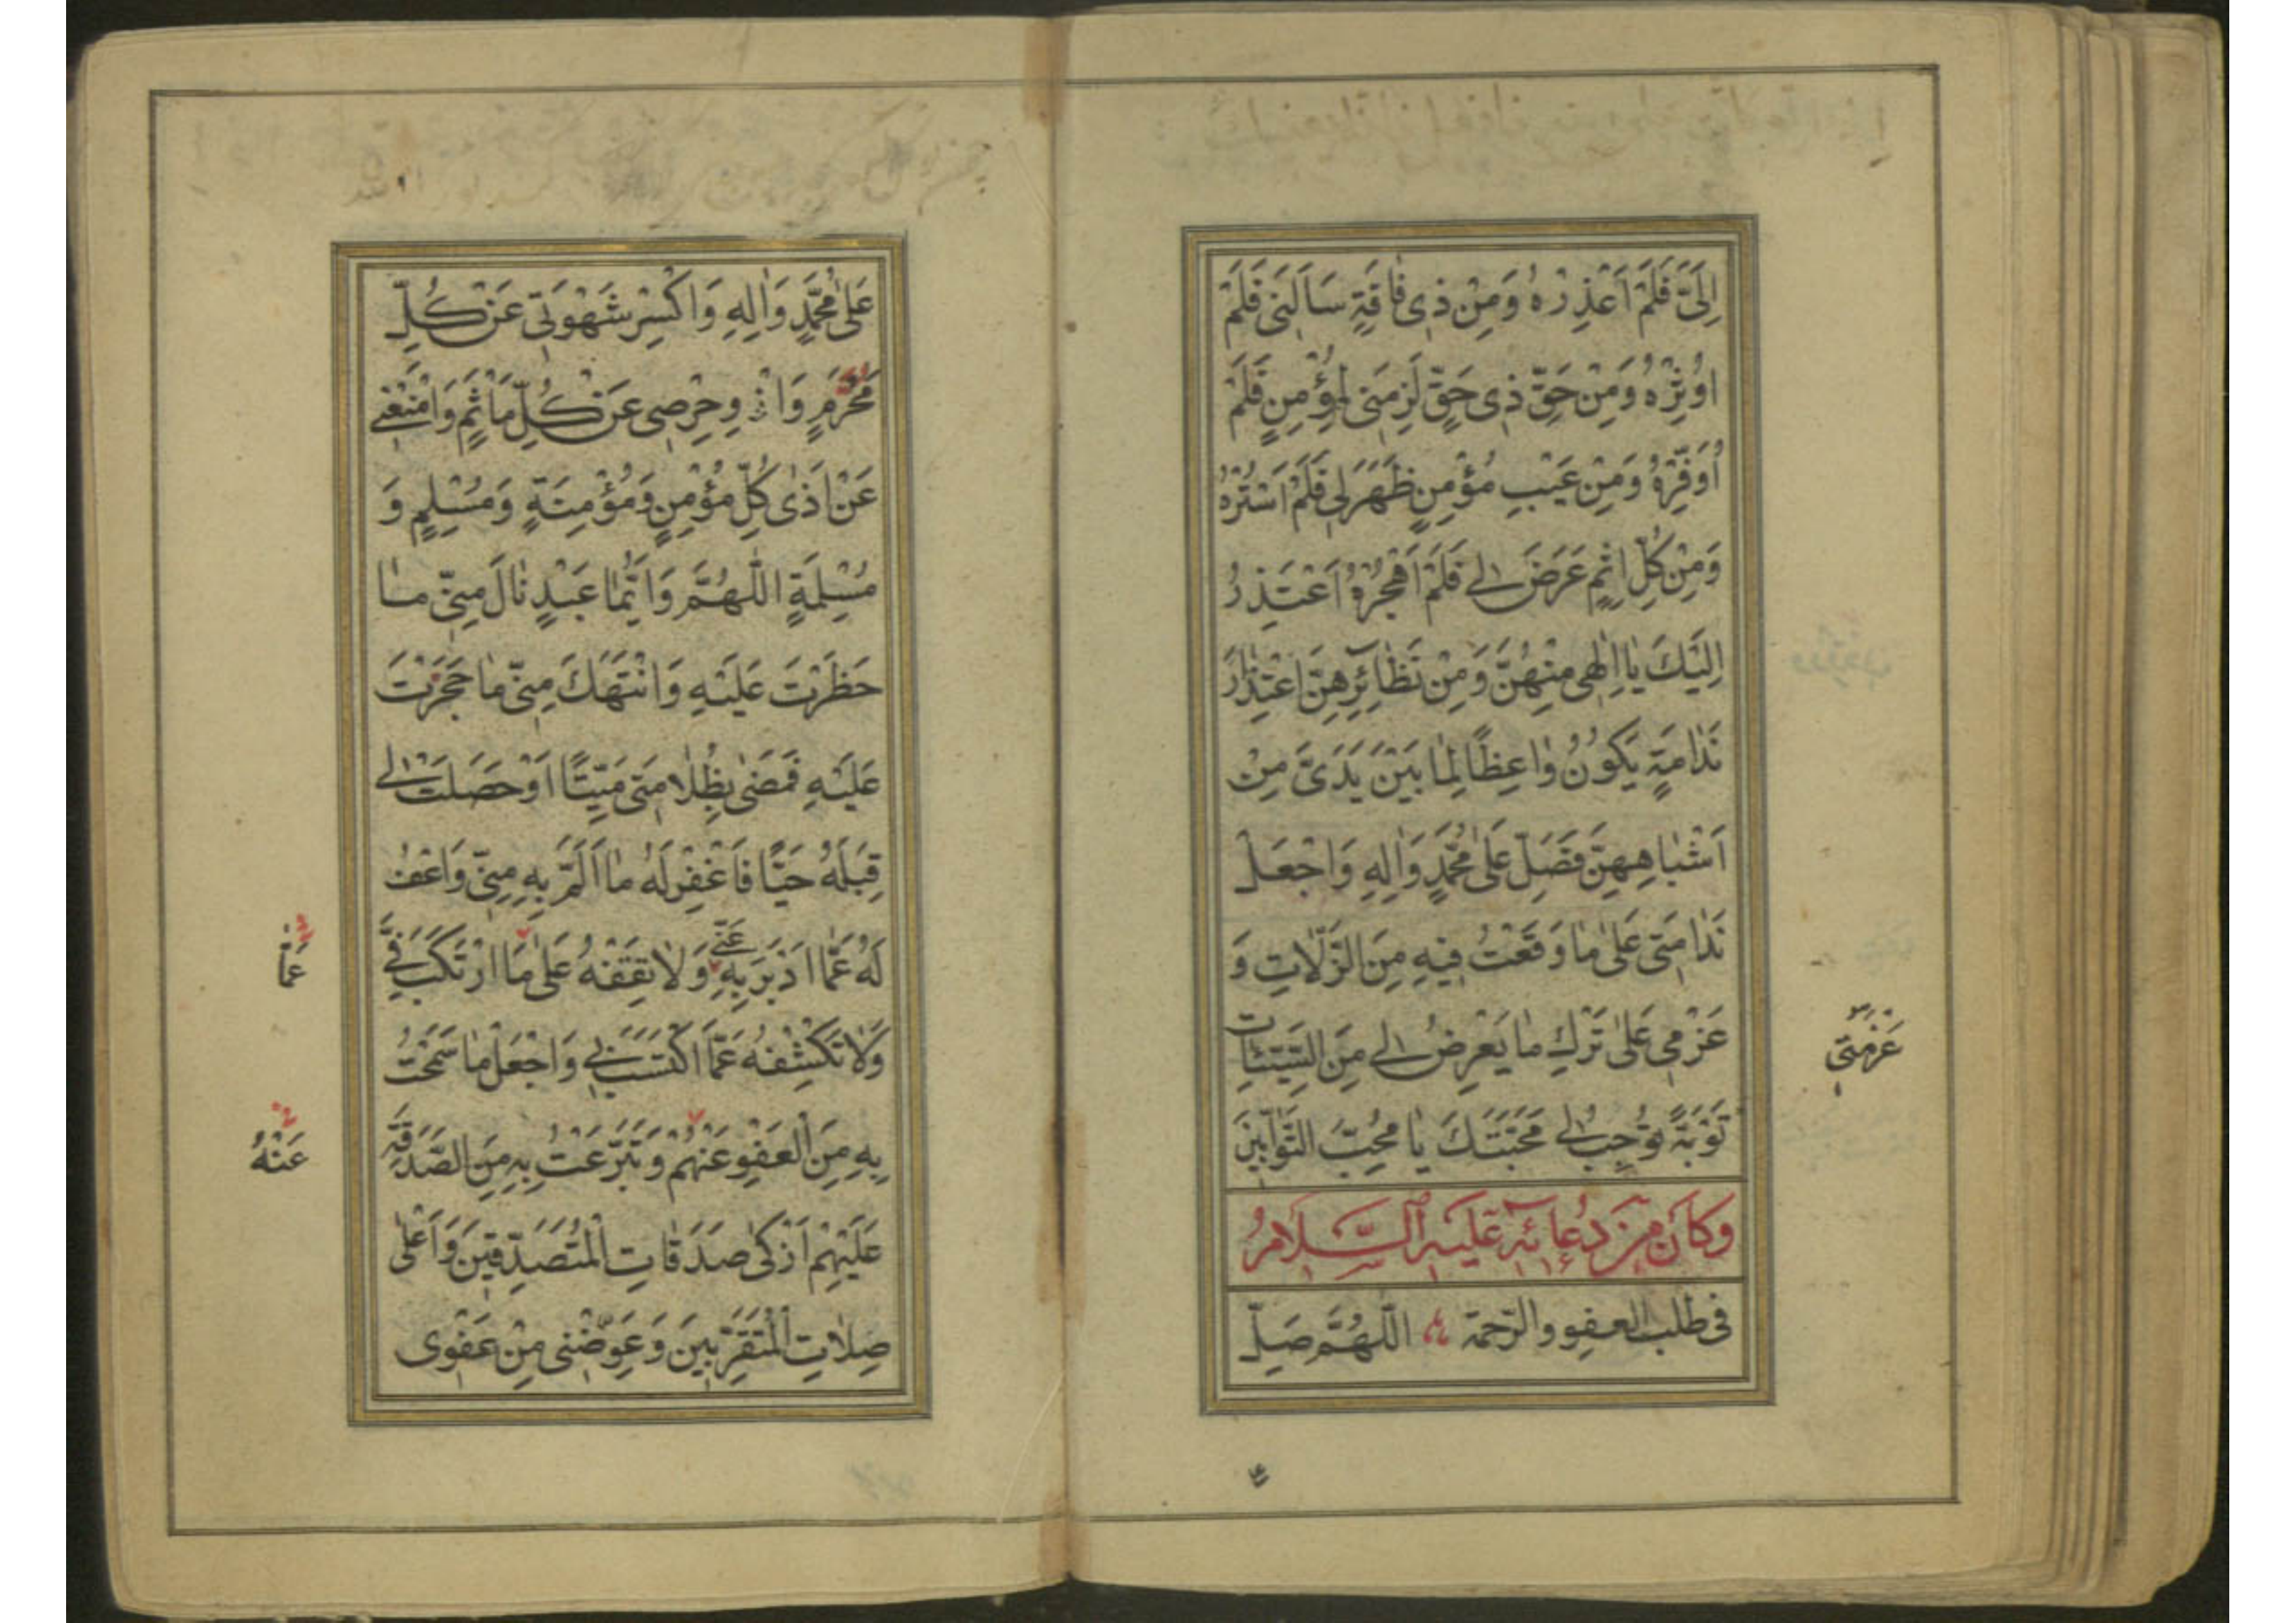 اِلَىَّ فَلَمْ اَعْذِرْهُ وَمِنْ ذِى فٰاقَةٍ سَاَلَنِى فَلَمْ
اوُثِرْهُ وَمِنْ حَقِّ ذِى حَقٍّ لَزِمَنِى لِمُؤْمِنٍ فَلَمْ
اُوَفِّرْهُ وَمِنْ عَيْبِ مُؤْمِنٍ ظَهَرَ لِى فَلَمْ اَسْتُرْهُ
وَمِنْ كُلِّ اِثْمٍ عَرَضَ لِى فَلَمْ اَهْجُرْهُ اَعْتَذِرُ
اِلَيْكَ يٰا اِلٰهِى مِنْهُنَّ وَمِنْ نَظٰائِرِهِنَّ اعْتِذٰارَ
نَدٰامَةٍ يَكُونُ وٰاعِظًا لِمٰا بَيْنَ يَدَىَّ مِنْ
اَشْبٰاهِهِنَّ فَصَلِّ عَلىٰ مُحَمَّدٍ وَاٰلِهِ وَاجْعَلْ
نَدٰامَتِى عَلىٰ مٰا وَقَعْتُ فِيهِ مِنَ الزَّلّٰاتِ وَ
عَزْمِى عَلىٰ تَرْكِ مٰا يَعْرِضُ لِى مِنَ السَّيِّئٰاتِ
عَزْمَتِى
تَوْبَةً تُوجِبُ لِى مَحَبَّتَكَ يٰا مُحِبَّ التَّوّٰابِينَ
وَكَانَ مِنْ دُعَائِهِ عَلَيْهِ السَّلَامُ
فى طلب العفو والرّحمة اللّٰهُمَّ صَلِّ
عَلىٰ مُحَمَّدٍ وَاٰلِهِ وَاكْسِرْ شَهْوَتِى عَنْ كُلِّ
مَحْرَمٍ وَاثْوِ حِرْصِى عَنْ كُلِّ مَاْثَمٍ وَامْنَعْنِى
عَنْ اَذىٰ كُلِّ مُؤْمِنٍ وَمُؤْمِنَةٍ وَمُسْلِمٍ وَ
مُسْلِمَةٍ اللّٰهُمَّ وَاَيُّمٰا عَبْدٍ نٰالَ مِنِّى مٰا
حَظَرْتَ عَلَيْهِ وَانْتَهَكَ مِنِّى مٰا حَجَرْتَ
عَلَيْهِ فَمَضىٰ بِظُلٰامَتِى مَيِّتًا اَوْ حَصَلَتْ لِى
قِبَلَهُ حَيًّا فَاغْفِرْ لَهُ مٰا اَلَمَّ بِهِ مِنِّى وَاعْفُ
لَهُ عَمَّا اَدْبَرَ بِهِ عَنِّى وَلٰا تَقِفْهُ عَلىٰ مَا ارْتَكَبَ فِىَّ
عَمَّا
وَلٰا تَكْشِفْهُ عَمَّا اكْتَسَبَ بِى وَاجْعَلْ مٰا سَمَحْتُ
بِهِ مِنَ الْعَفْوِ عَنْهُمْ وَتَبَرَّعْتُ بِهِ مِنَ الصَّدَقَةِ
عَنْهُ
عَلَيْهِمْ اَزْكىٰ صَدَقٰاتِ الْمُتَصَدِّقِينَ وَاَعْلىٰ
صِلٰاتِ الْمُتَقَرِّبِينَ وَعَوِّضْنِى مِنْ عَفْوِى